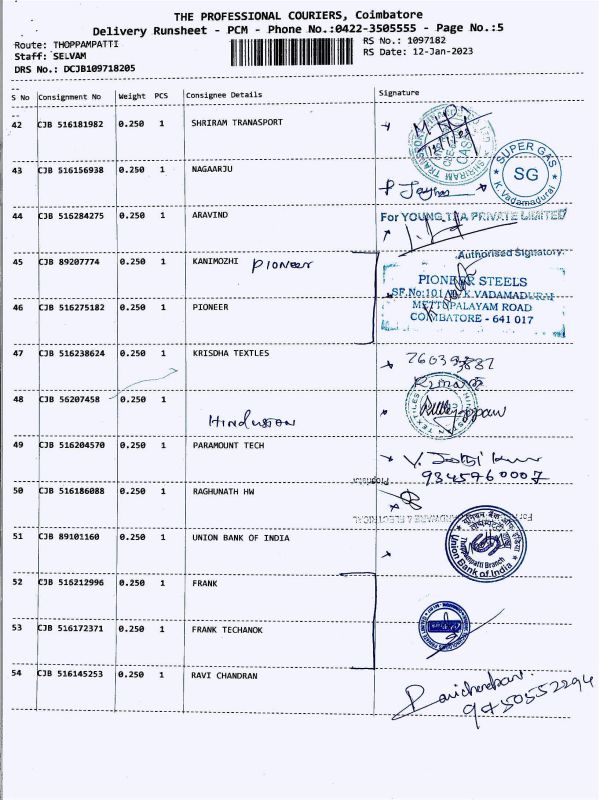 THE PROFESSIONAL COURIERS, Coimbatore
Delivery Runsheet - PCM - Phone No.:0422-3505555 - Page No.:5
Route: THOPPAMPATTI
RS No.: 1097182
Staff: SELVAM
RS Date: 12-Jan-2023
DRS No.: DCJB109718205
S No Consignment No Weight PCS Consignee Details Signature
42 CJB 516181982 0.250 1 SHRIRAM TRANASPORT
SHRIRAM TRANSPORT
43 CJB 516156938 0.250 1 NAGAARJU
SUPER GAS
SG
K.Vadamadurai
44 CJB 516284275 0.250 1 ARAVIND
For YOUNG PRIVATE LIMITED
Authorised Signatory.
45 CJB 89207774 0.250 1 KANIMOZHI Pioneer
46 CJB 516275182 0.250 1 PIONEER
PIONEER STEELS
SF.No:101 K.VADAMADURAI
METTUPALAYAM ROAD
COIMBATORE - 641 017
47 CJB 516238624 0.250 1 KRISDHA TEXTLES
48 CJB 56207458 0.250 1
Hindustan
TEXTILES
49 CJB 516204570 0.250 1 PARAMOUNT TECH
9345760007
Proprietor
50 CJB 516186088 0.250 1 RAGHUNATH HW
HARDWARE & ELECTRICAL
51 CJB 89101160 0.250 1 UNION BANK OF INDIA
Thoppampatti Branch
Union Bank of India
52 CJB 516212996 0.250 1 FRANK
53 CJB 516172371 0.250 1 FRANK TECHANOK
54 CJB 516145253 0.250 1 RAVI CHANDRAN
Ravichandran
9750552294